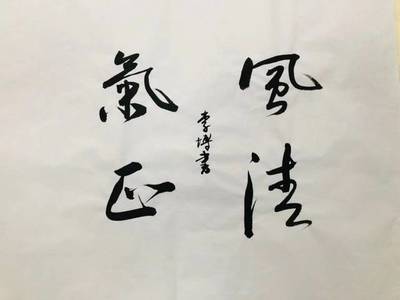 風清
氣正
李博書